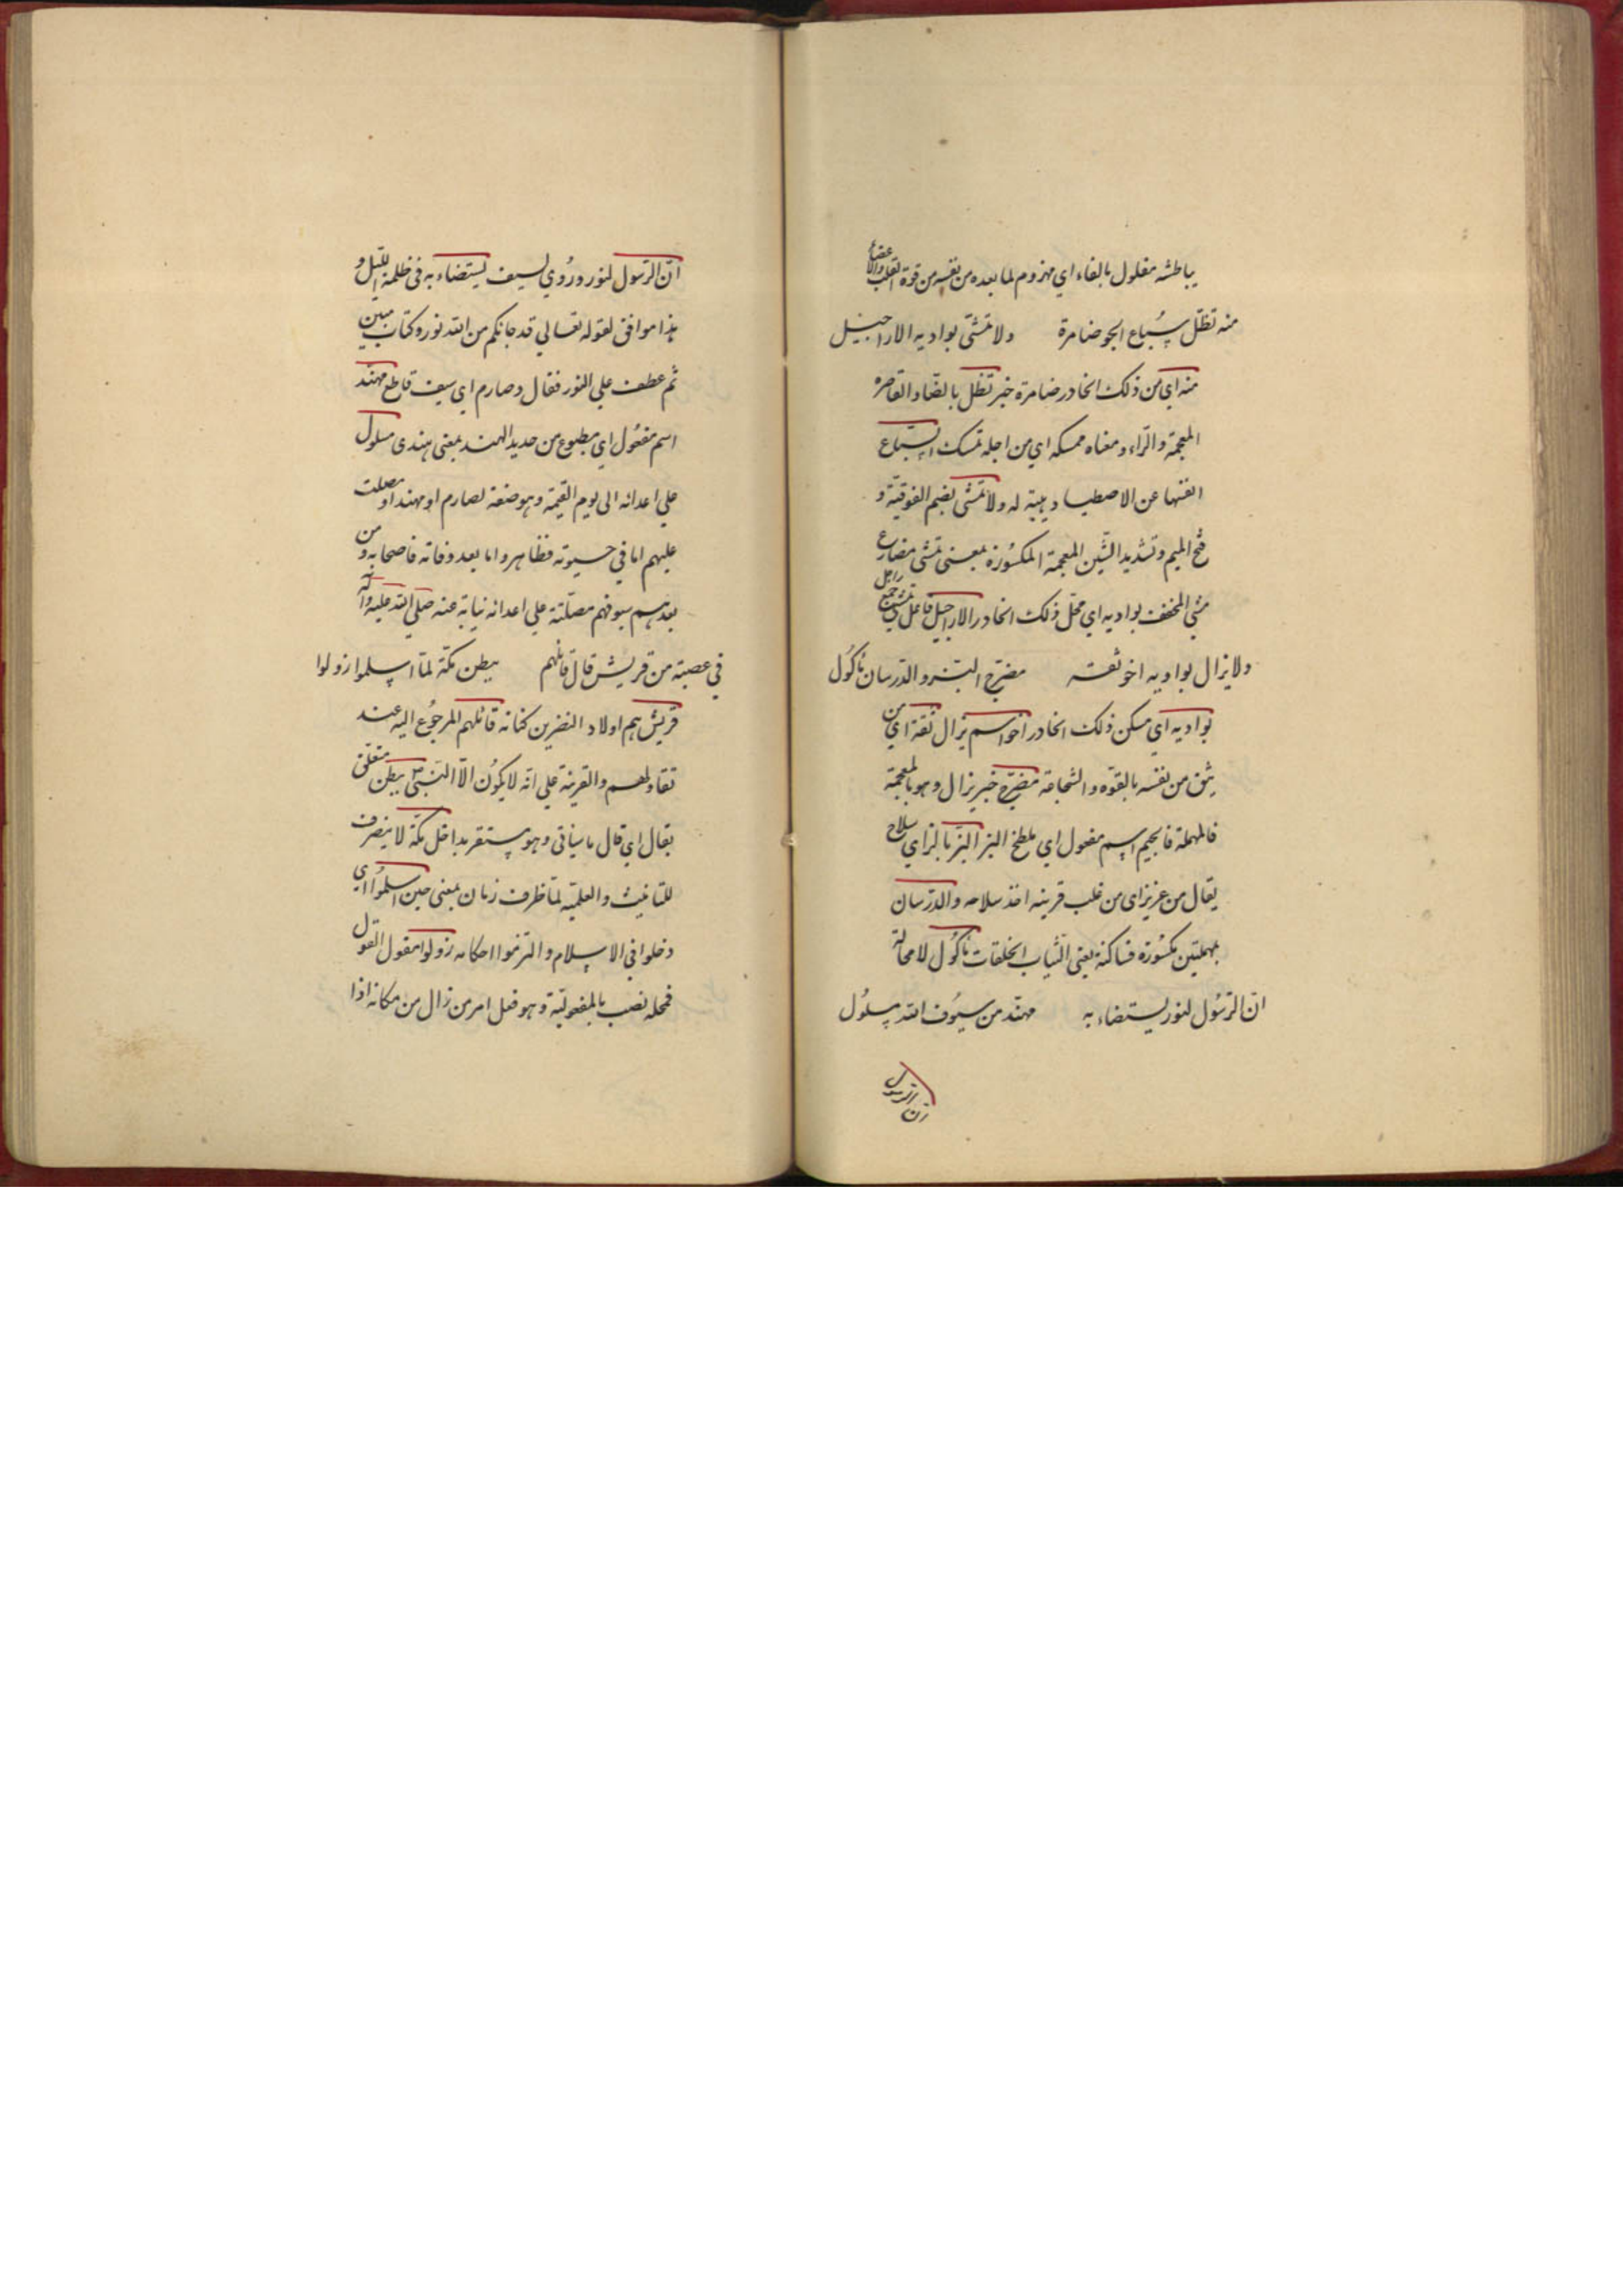 يباطشه مفلول بالفاء اي مهزوم لما بعده من نفسه من قوة القلب والاعضاء
منه تظلّ سُباع الجو ضامرة ولا تمشّى بواديه الاراجيل
منه اي من ذلك الخادر ضامرة خبر تظل بالضاد القاصره
المعجمة والراء ومعناه ممسكه اي من اجله تمسك السباع
انفسها عن الاصطياد هيبة له ولا تمشى بضم الفوقيّة و
فتح الميم وتشديد الشّين المعجمة المكسُورة بمعنى تمشى مضارع
مشي المخفف بواديه اي محلّ ذلك الخادر الاراجيل فاعل تمشى جمع راجل
ولا يزال بواديه اخو ثقـة مضرّج البـز والدرسان مأكُول
بواديه اي مسكن ذلك الخادر اخو اسم يزال ثقة اي من
يثق من نفسه بالقوّه والشجاعة مضرّج خبر يزال وهو بالمعجمة
فالمهملة فالجيم اسم مفعول اي ملطخ البز البزّ بالزاي سلاح
يقال من عزيز اى من غلب قرينه اخذ سلاحه والدرْسان
بمهملتين مكسُورة فساكنة يعنى الثّياب الخلقات مأكُول لا محالة
انّ الرّسُول لنور يستضاء به مهنّد من سيُوف الله مسلُول
ان الرسول
انّ الرّسول لنور ورُوي لسيف يستضاء به في ظلمة الليل و
هذا موافق لقوله تعالي قد جائكم من الله نور وكتاب مبين
ثم عطف علي النور فقال وصارم اي سيف قاطع مهنّد
اسم مفعُول اي مطبوع من حديد الهند بمعنى هندى مسلول
علي اعدائه الى يوم القيمة وهو صفة لصارم او مهند او مصلت
عليهم اما في حيوته فظاهر واما بعد وفاته فاصحابه و من
بعدهم سيوفهم مصلّتة علي اعدائه نيابة عنه صلّي الله عليه وآله
في عصبة من قريش قال قائلهم ببطن مكّة لمّا اسلموا زولوا
قريش هم اولاد النضر بن كنانه قائلهم المرجُوع اليه عند
تقاولهم والقرينة علي انّه لا يكُون الّا النّبيّ ببطن متعلّق
بقال اي قال ما سيأتي وهو مستقر بداخل مكّة لا ينصرف
للتانيث والعلميّة لمّا ظرف زمان بمعنى حين اسلموُا اي
دخلوا في الاسلام والتزموا احكامه زولوا مقول القول
فمحله نصب بالمفعوليّة وهو فعل امر من زال من مكانه اذا